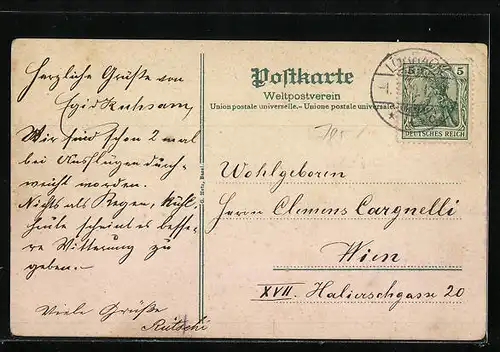 Postkarte
Weltpostverein
Union postale universelle. – Unione postale universale
5
DEUTSCHES REICH
Herzliche Grüße von
Egid Ruhsam,
Wir sind schon 2 mal
bei Ausflügen durch-
weicht worden.
Nichts als Regen, kühl.
Heute scheint es besse-
re Witterung zu
geben.–
Viele Grüße
Wohlgeboren
Herrn Clemens Cargnelli
Wien
XVII. Halierschgasse 20